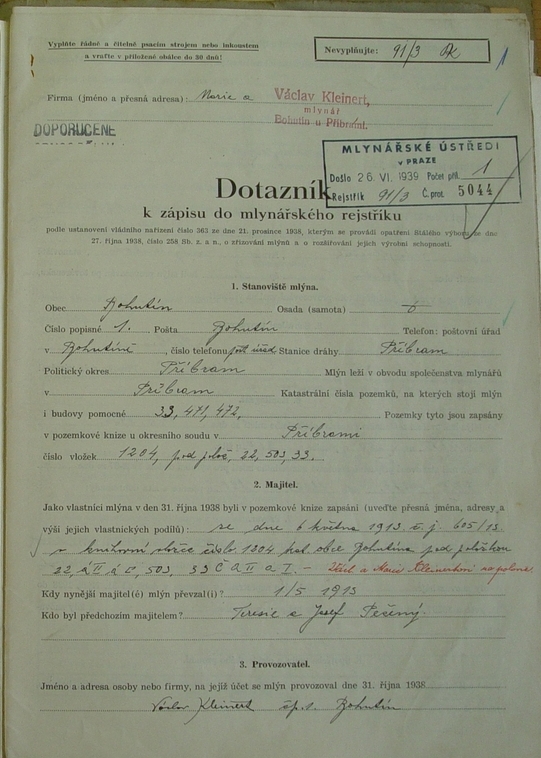 Vyplňte řádně a čitelně psacím strojem nebo inkoustem
a vraťte v přiložené obálce do 30 dnů!
Nevyplňujte: 91/3
Firma (jméno a přesná adresa): Marie a Václav Kleinert,
mlynář
Bohutín u Příbrami.
DOPORUČENĚ
MLYNÁŘSKÉ ÚSTŘEDÍ
V PRAZE
Došlo 26. VI. 1939 Počet příl. 1
Rejstřík 91/3 Č. prot. 5044
Dotazník
k zápisu do mlynářského rejstříku
podle ustanovení vládního nařízení číslo 363 ze dne 21. prosince 1938, kterým se provádí opatření Stálého výboru ze dne
27. října 1938, číslo 258 Sb. z. a n., o zřizování mlýnů a o rozšiřování jejich výrobní schopnosti.
1. Stanoviště mlýna.
Obec Bohutín Osada (samota)
Číslo popisné 1. Pošta Bohutín Telefon: poštovní úřad
v Bohutíně, číslo telefonu Stanice dráhy Příbram
Politický okres Příbram Mlýn leží v obvodu společenstva mlynářů
v Příbram Katastrální čísla pozemků, na kterých stojí mlýn
i budovy pomocné 33, 471, 472, Pozemky tyto jsou zapsány
v pozemkové knize u okresního soudu v Příbrami
číslo vložek 1204, pod polož. 22, 503, 33.
2. Majitel.
Jako vlastníci mlýna v den 31. října 1938 byli v pozemkové knize zapsáni (uveďte přesná jména, adresy a
výši jejich vlastnických podílů): se dne 6 května 1913 č. j. 605/13.
v knihovní vložce číslo 1204 kat. obce Bohutína pod položkou
22, 503, 33 A II a I. – Václ. a Marie Kleinertovi
Kdy nynější majitel(é) mlýn převzal(i)? 1/5 1913
Kdo byl předchozím majitelem? Terezie a Josef Pečený.
3. Provozovatel.
Jméno a adresa osoby nebo firmy, na jejíž účet se mlýn provozoval dne 31. října 1938
Václav Kleinert čp. 1. Bohutín